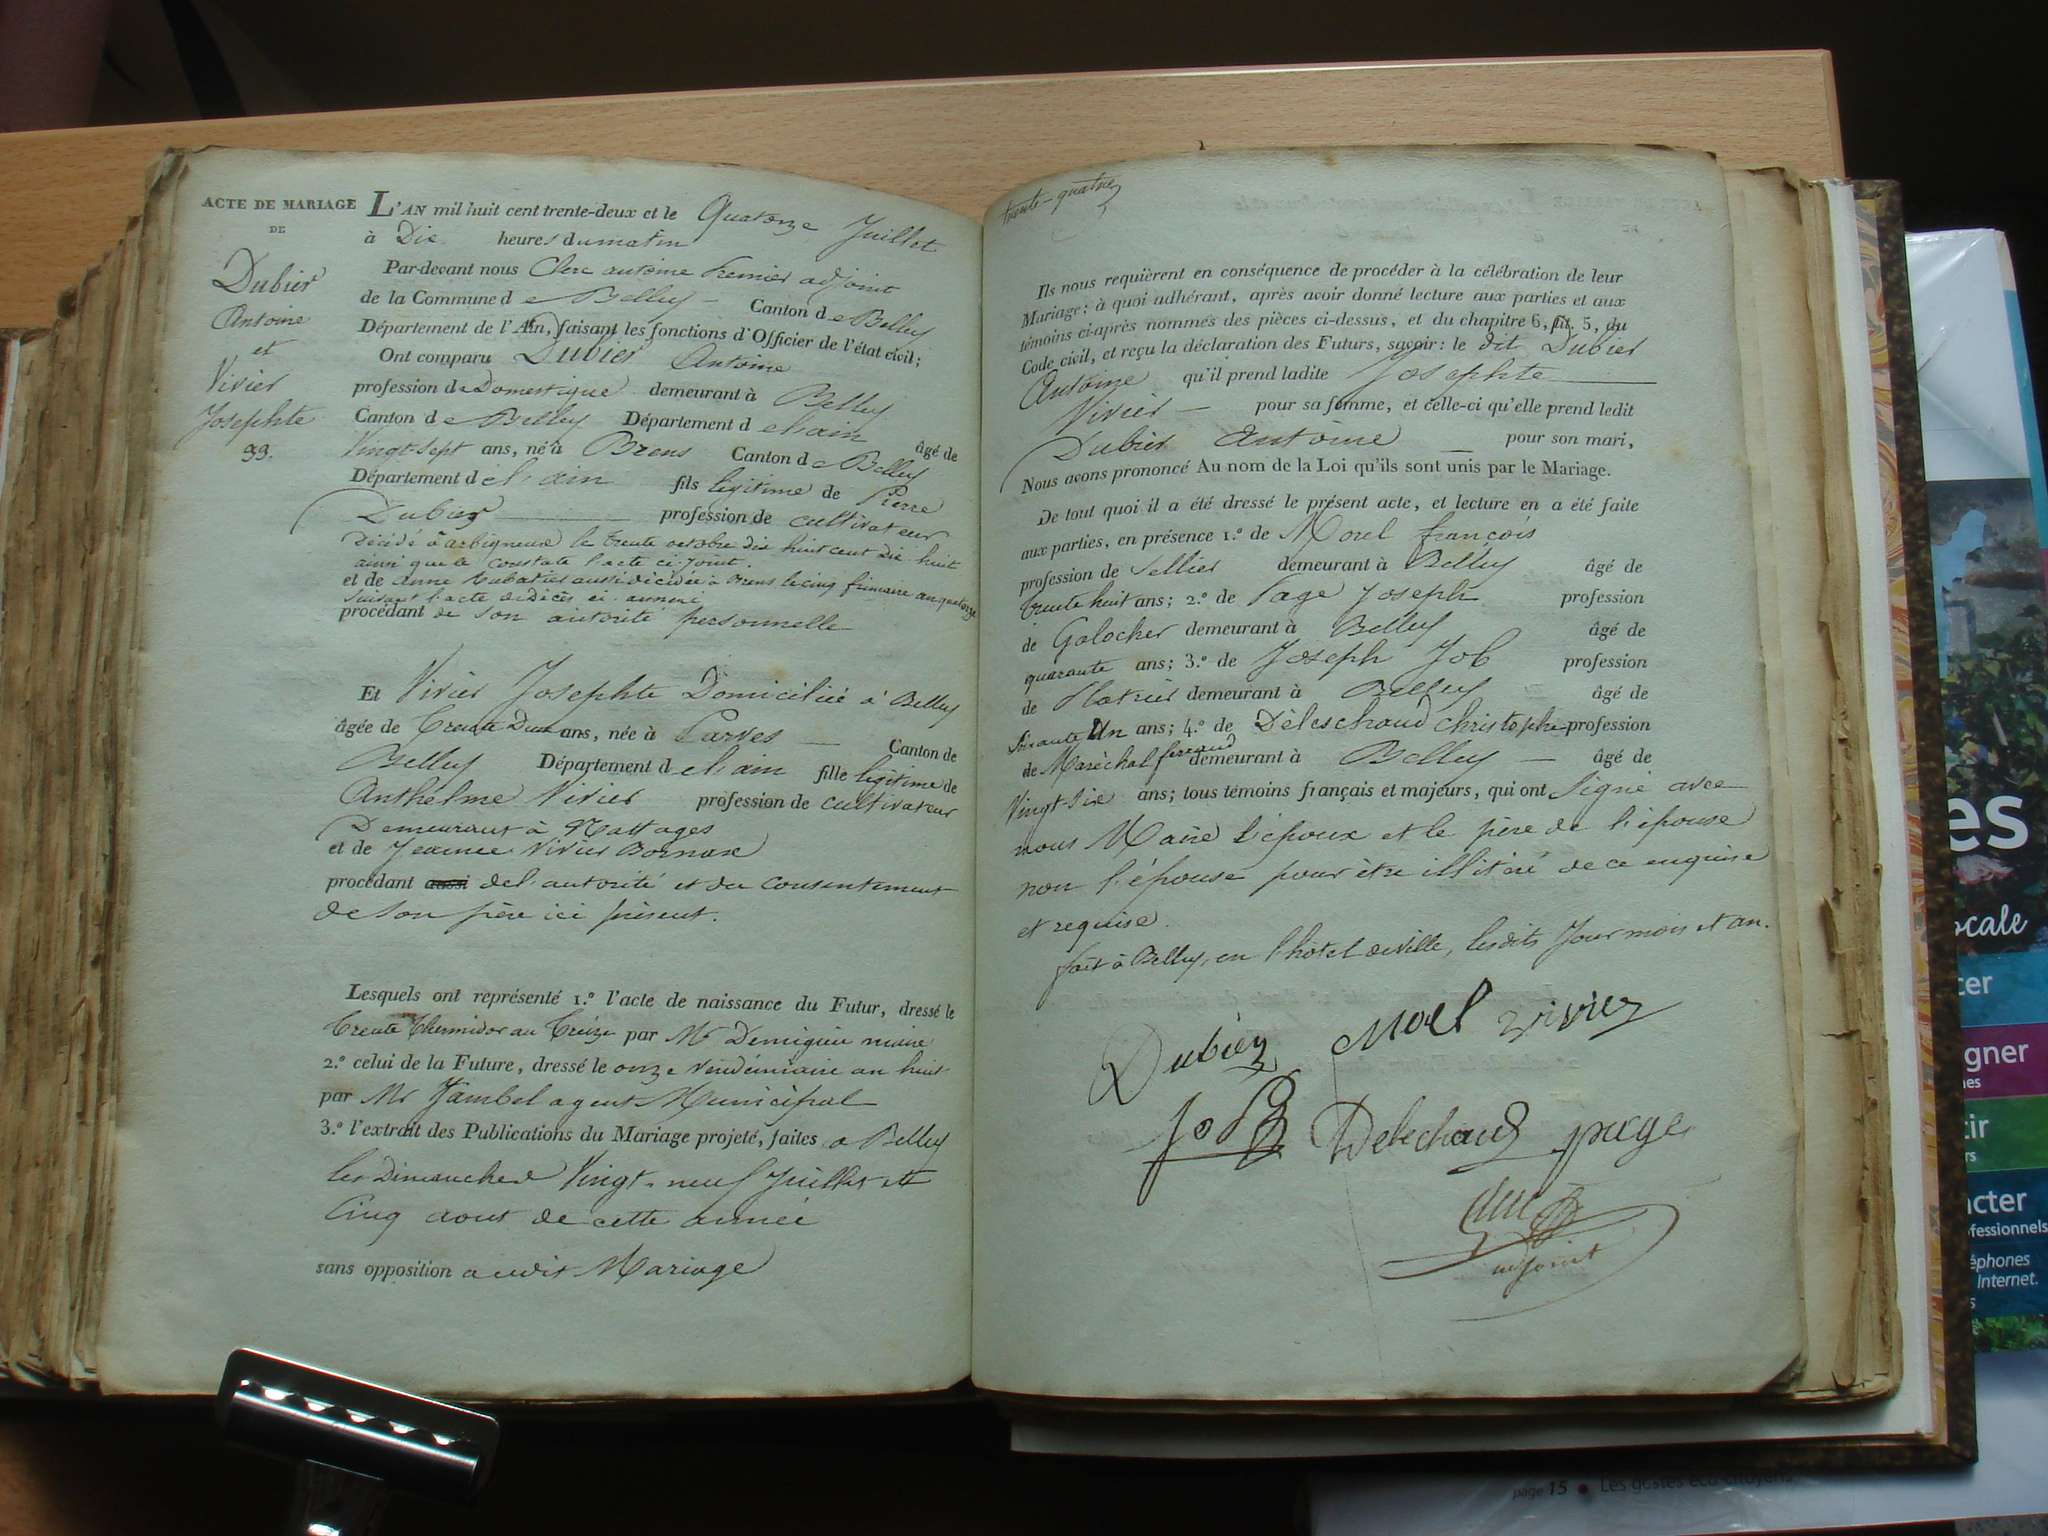 ACTE DE MARIAGE
DE
Dubier
Antoine
et
Vivier
Josephte
33.
L'AN mil huit cent trente-deux et le Quatorze Juillet
à Dix heures du matin
Par-devant nous Clerc antoine Premier adjoint
de la Commune de Belley Canton de Belley
Département de l'Ain, faisant les fonctions d'Officier de l'état civil;
Ont comparu Dubier Antoine
profession de Domestique demeurant à Belley
Canton de Belley Département de l'ain âgé de
Vingt-Sept ans, né à Brens Canton de Belley
Département de l'ain fils légitime de Pierre
Dubier profession de cultivateur
Décédé à arbignieux le trente octobre dix huit cent dix huit
ainsi que le constate l'acte ci-joint.
et de anne aussi décédée à Brens le cinq frimaire an quatorze
suivant l'acte de décès ci-annexé
procédant de son autorité personnelle
Et Vivier Josephte Domiciliée à Belley
âgée de Trente Deux ans, née à Parves Canton de
Belley Département de l'ain fille légitime de
Anthelme Vivier profession de cultivateur
Demeurant à Nattages
et de Jeanne Vivier Bornax
procédant del'autorité et du consentement
de son père ici présent.
Lesquels ont représenté 1.º l'acte de naissance du Futur, dressé le
trente thermidor an treize par Mr Demigieu maire
2.º celui de la Future, dressé le onze Vendémiaire an huit
par Mr Jambel agent Municipal
3.º l'extrait des Publications du Mariage projeté, faites a Belley
les Dimanches Vingt-neuf Juillet et
Cinq aout de cette année
sans opposition audit Mariage
trente-quatre
Ils nous requièrent en conséquence de procéder à la célébration de leur
Mariage: à quoi adhérant, après avoir donné lecture aux parties et aux
témoins ci-après nommés des pièces ci-dessus, et du chapitre 6, tit. 5, du
Code civil, et reçu la déclaration des Futurs, savoir: le dit Dubier
Antoine qu'il prend ladite Josephte
Vivier pour sa femme, et celle-ci qu'elle prend ledit
Dubier Antoine pour son mari,
Nous avons prononcé Au nom de la Loi qu'ils sont unis par le Mariage.
De tout quoi il a été dressé le présent acte, et lecture en a été faite
aux parties, en présence 1.º de Morel françois
profession de Sellier demeurant à Belley âgé de
trente huit ans; 2.º de Page Joseph profession
de Galocher demeurant à Belley âgé de
quarante ans; 3.º de Joseph Job profession
de Platrier demeurant à Belley âgé de
Soixante Un ans; 4.º de Déleschaud christophe profession
de Maréchal ferrand demeurant à Belley âgé de
Vingt Six ans; tous témoins français et majeurs, qui ont Signé avec
nous Maire l'époux et le père de l'épouse
non l'épouse pour être illitéré de ce enquise
et requise.
fait à Belley, en l'hotel de ville, lesdits Jour mois et an.
Dubier Morel vivier
JoB Delechaud page
Clerc
adjoint
es
ocale
cer
gner
nes
tir
rs
acter
ofessionnels
éphones
Internet.
s
page 15 • Les gestes éco-citoyens